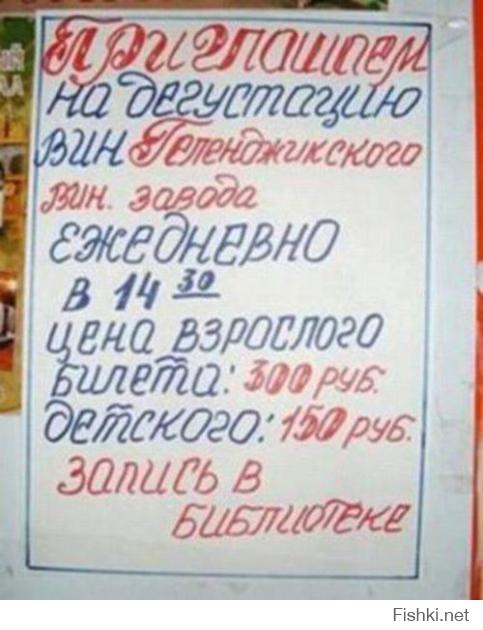 Приглашаем
на дегустацию
вин Геленджикского
вин. завода
ежедневно
в 14 30
цена взрослого
билета: 300 руб.
детского: 150 руб.
запись в
библиотеке
Fishki.net